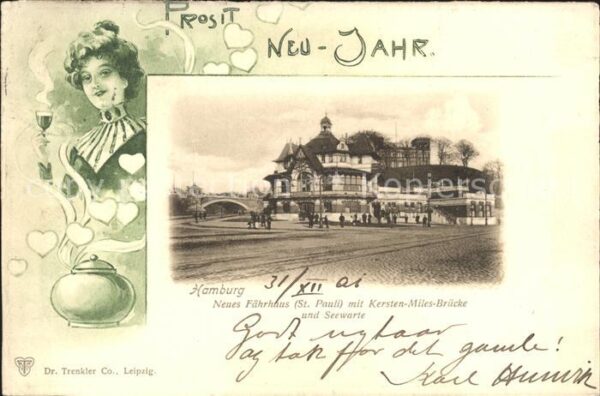 PROSIT
NEU-JAHR.
Hamburg 31/XII 01
Neues Fährhaus (St. Pauli) mit Kersten-Miles-Brücke
und Seewarte
Godt nytaar
og tak for det gamle!
Karl
Dr. Trenkler Co., Leipzig.